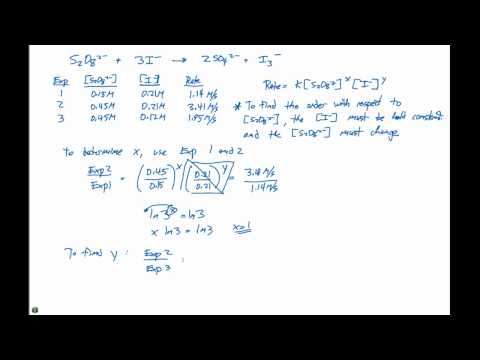 S₂O₈²⁻ + 3I⁻ → 2SO₄²⁻ + I₃⁻
Exp [S₂O₈²⁻] [I⁻] Rate
1 0.15M 0.21M 1.14 M/s
2 0.45M 0.21M 3.41 M/s
3 0.45M 0.12M 1.95 M/s
Rate = K[S₂O₈²⁻]ˣ[I⁻]ʸ
* To find the order with respect to
[S₂O₈²⁻], the [I⁻] must be held constant
and the [S₂O₈²⁻] must change
To determine x, use Exp 1 and 2
Exp2/Exp1 = (0.45/0.15)ˣ (0.21/0.21)ʸ = 3.41 M/s / 1.14 M/s
ln 3ˣ = ln 3
x ln 3 = ln 3 x=1
To find y : Exp 2/Exp 3